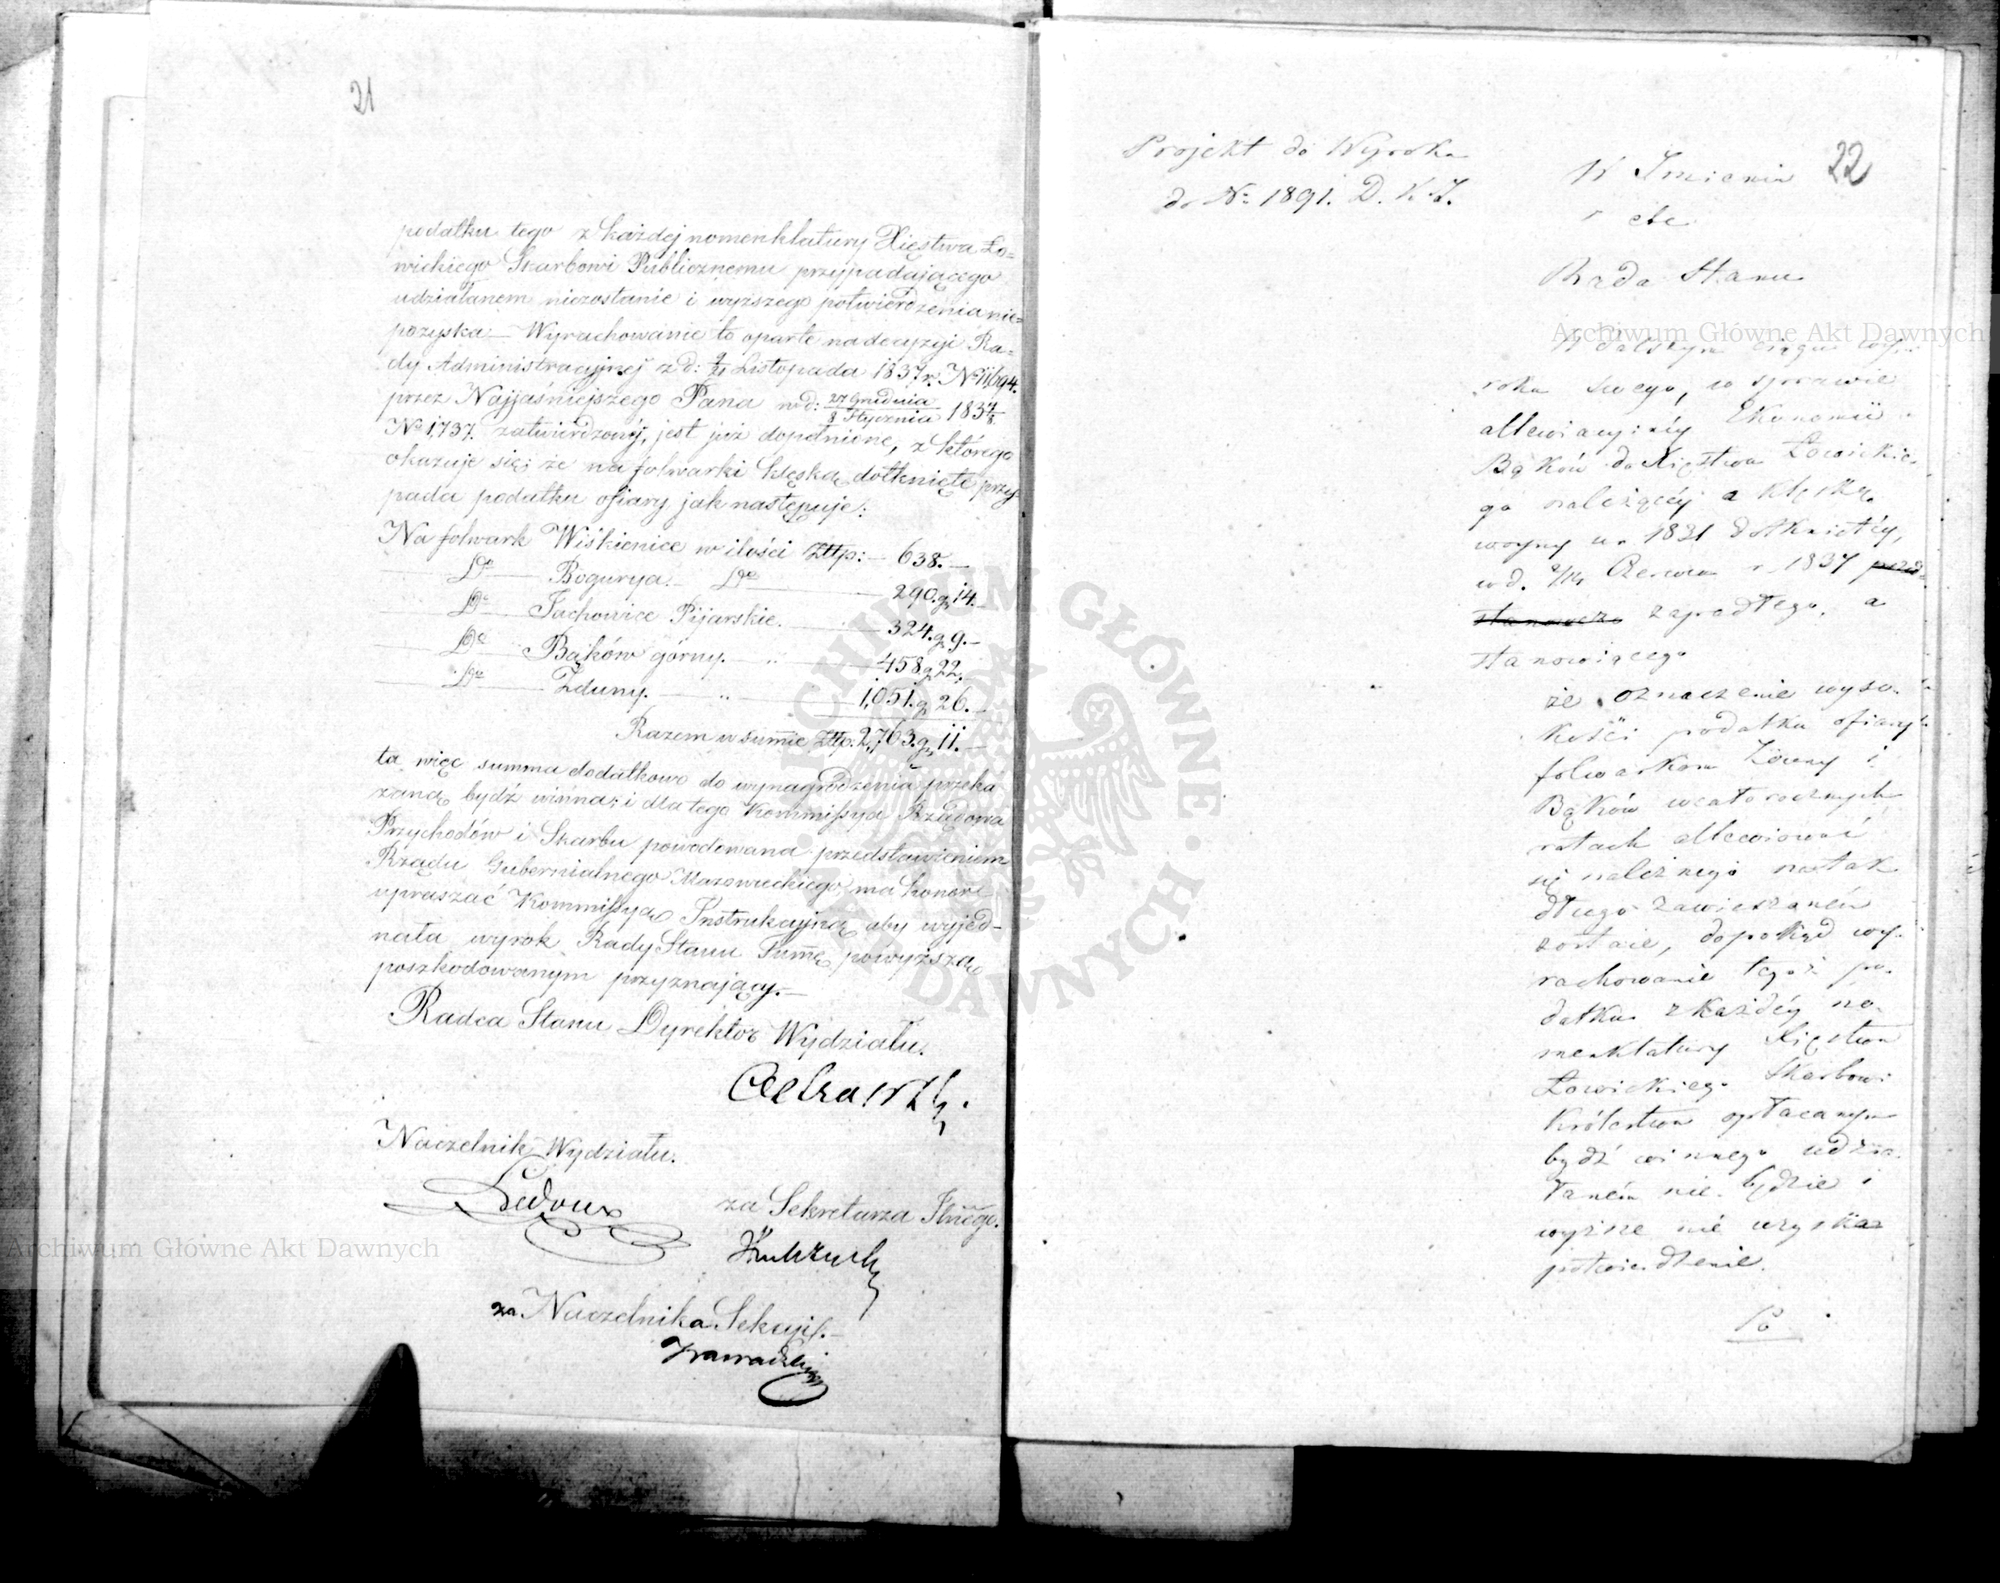 21
podatku tego z każdej nomenklatury Xięstwa Ło=
wickiego Skarbowi Publicznemu przypadającego
udziałanem niezostanie i wyższego potwierdzenia nie=
pozyska – Wyrachowanie to oparte na decyzyi Ra=
dy Administracyjnej z d: 9/21 Listopada 1837 r. No 11,694.
przez Najjaśniejszego Pana w d: 27 Grudnia/8 Stycznia 1837/8
No 1,737. zatwierdzonéj, jest już dopełnione, z którego
okazuje się; że na folwarki klęską dotknięte przy
pada podatku ofiary jak następuje:
Na folwark Wiskienice w ilości Złp: – 638. –
do – Bogurya. – do – 290. g. 14. –
do Jachowice Pijarskie. – 324. g. 9. –
do Bąków górny. – „ – 458 g. 22. –
do Zduny. – „ – 1,051. g. 26. –
Razem w summie Złp: 2,763. g. 11. –
ta więc summa dodatkowo do wynagrodzenia przeka
zaną bydź winna; i dla tego Kommissya Rządowa
Przychodów i Skarbu powodowana przedstawieniem
Rządu Gubernialnego Mazowieckiego ma honor
upraszać Kommissyą Instrukcyjną aby wyjed-
nała wyrok Rady Stanu Summę powyższą
poszkodowanym przyznający. –
Radca Stanu Dyrektor Wydziału.
Naczelnik Wydziału.
Ledoux
za Sekretarza Jlnego.
za Naczelnika Sekcyi. –
22
Projekt do Wyroku
do No 1891. D. K. I.
W Imieniu
etc
Rada Stanu
W dalszym ciągu wy-
roku swego, w sprawie
allewiacyinéy Ekonomii
Bąków do Xięstwa Łowickie-
go należącéy a klęską
woyny r. 1831 dotkniętéy,
w d. 2/14 Czerwca r. 1837
zapadłego, a
stanowiącego
że oznaczenie wyso-
kości podatku ofiary
folwarkom Zduny i
Bąków w całorocznych
ratach allewiować
się należnego na tak
długo zawieszaném
zostaie, dopokąd wy-
rachowanie tegoż po-
datku z każdéy no-
menklatury Xięstwa
Łowickiego Skarbowi
Królestwa opłacanym
bydź winnego udzia-
łaném nie będzie i
wyższe nie uzyska
potwierdzenie.
Po
Archiwum Główne Akt Dawnych
Archiwum Główne Akt Dawnych
ARCHIWUM GŁÓWNE AKT DAWNYCH